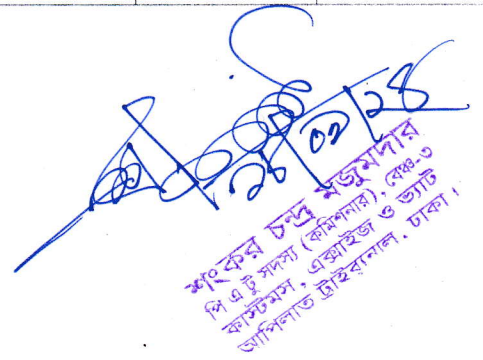 ২৮/০২/২৪
শংকর চন্দ্র মজুমদার
পি এ টু সদস্য (কমিশনার), বেঞ্চ-৩
কাস্টমস, এক্সাইজ ও ভ্যাট
আপিলাত ট্রাইব্যুনাল, ঢাকা।